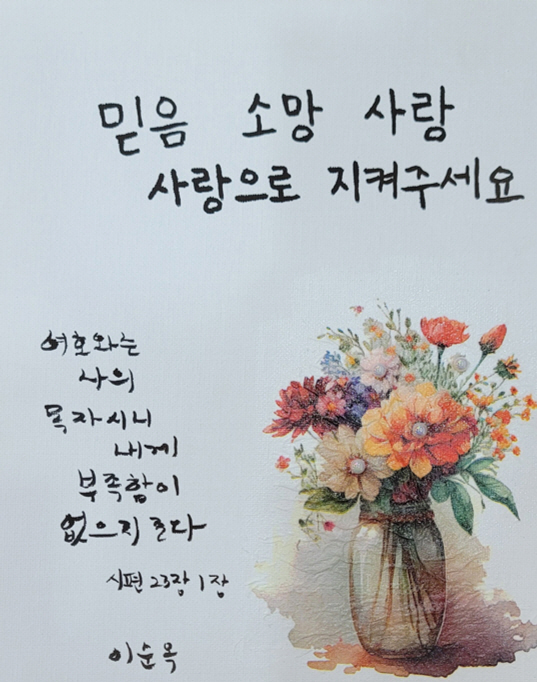 믿음 소망 사랑
사랑으로 지켜주세요
여호와는
나의
목자시니
내게
부족함이
없으지로다
시편 23장 1장
이순옥